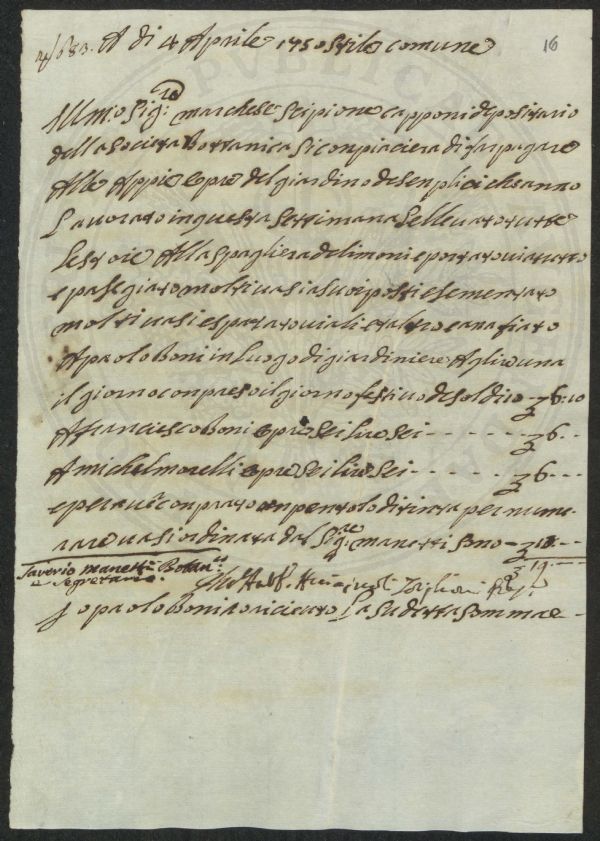 A di 4 Aprile 1750 stile comune
16
Illmo Sig:re marchese Scipione Capponi depositario
della Societa Bottanica Si conpiaciera di far pagare
Alle Appie opre del giardino de senplici che anno
Lavorato in questa settimana Sellevato tutte
le stoie Alla spagliera de limoni e portato via tutto
e pasegiato molti vasi a suoi posti e sementato
molti vasi e spazato viali e taltro e anafiato
A paolo Boni in luogo di giardiniere A glire una
il giorno conpreso il giorno festivo de soldi 10 - 6:10
A Franciesco Boni opre Sei lire Sei - - - - - 6 - -
A michel morelli opre Sei lire Sei - - - - - 6 - - -
e per avè conprato un pentolo di tinta per nume
rare vasi ordinata dal Sig:re manetti sono -
Saverio Manetti Botan:co
e Segretario.
19
Io paolo Boni o ricievto La sudetta somma e -